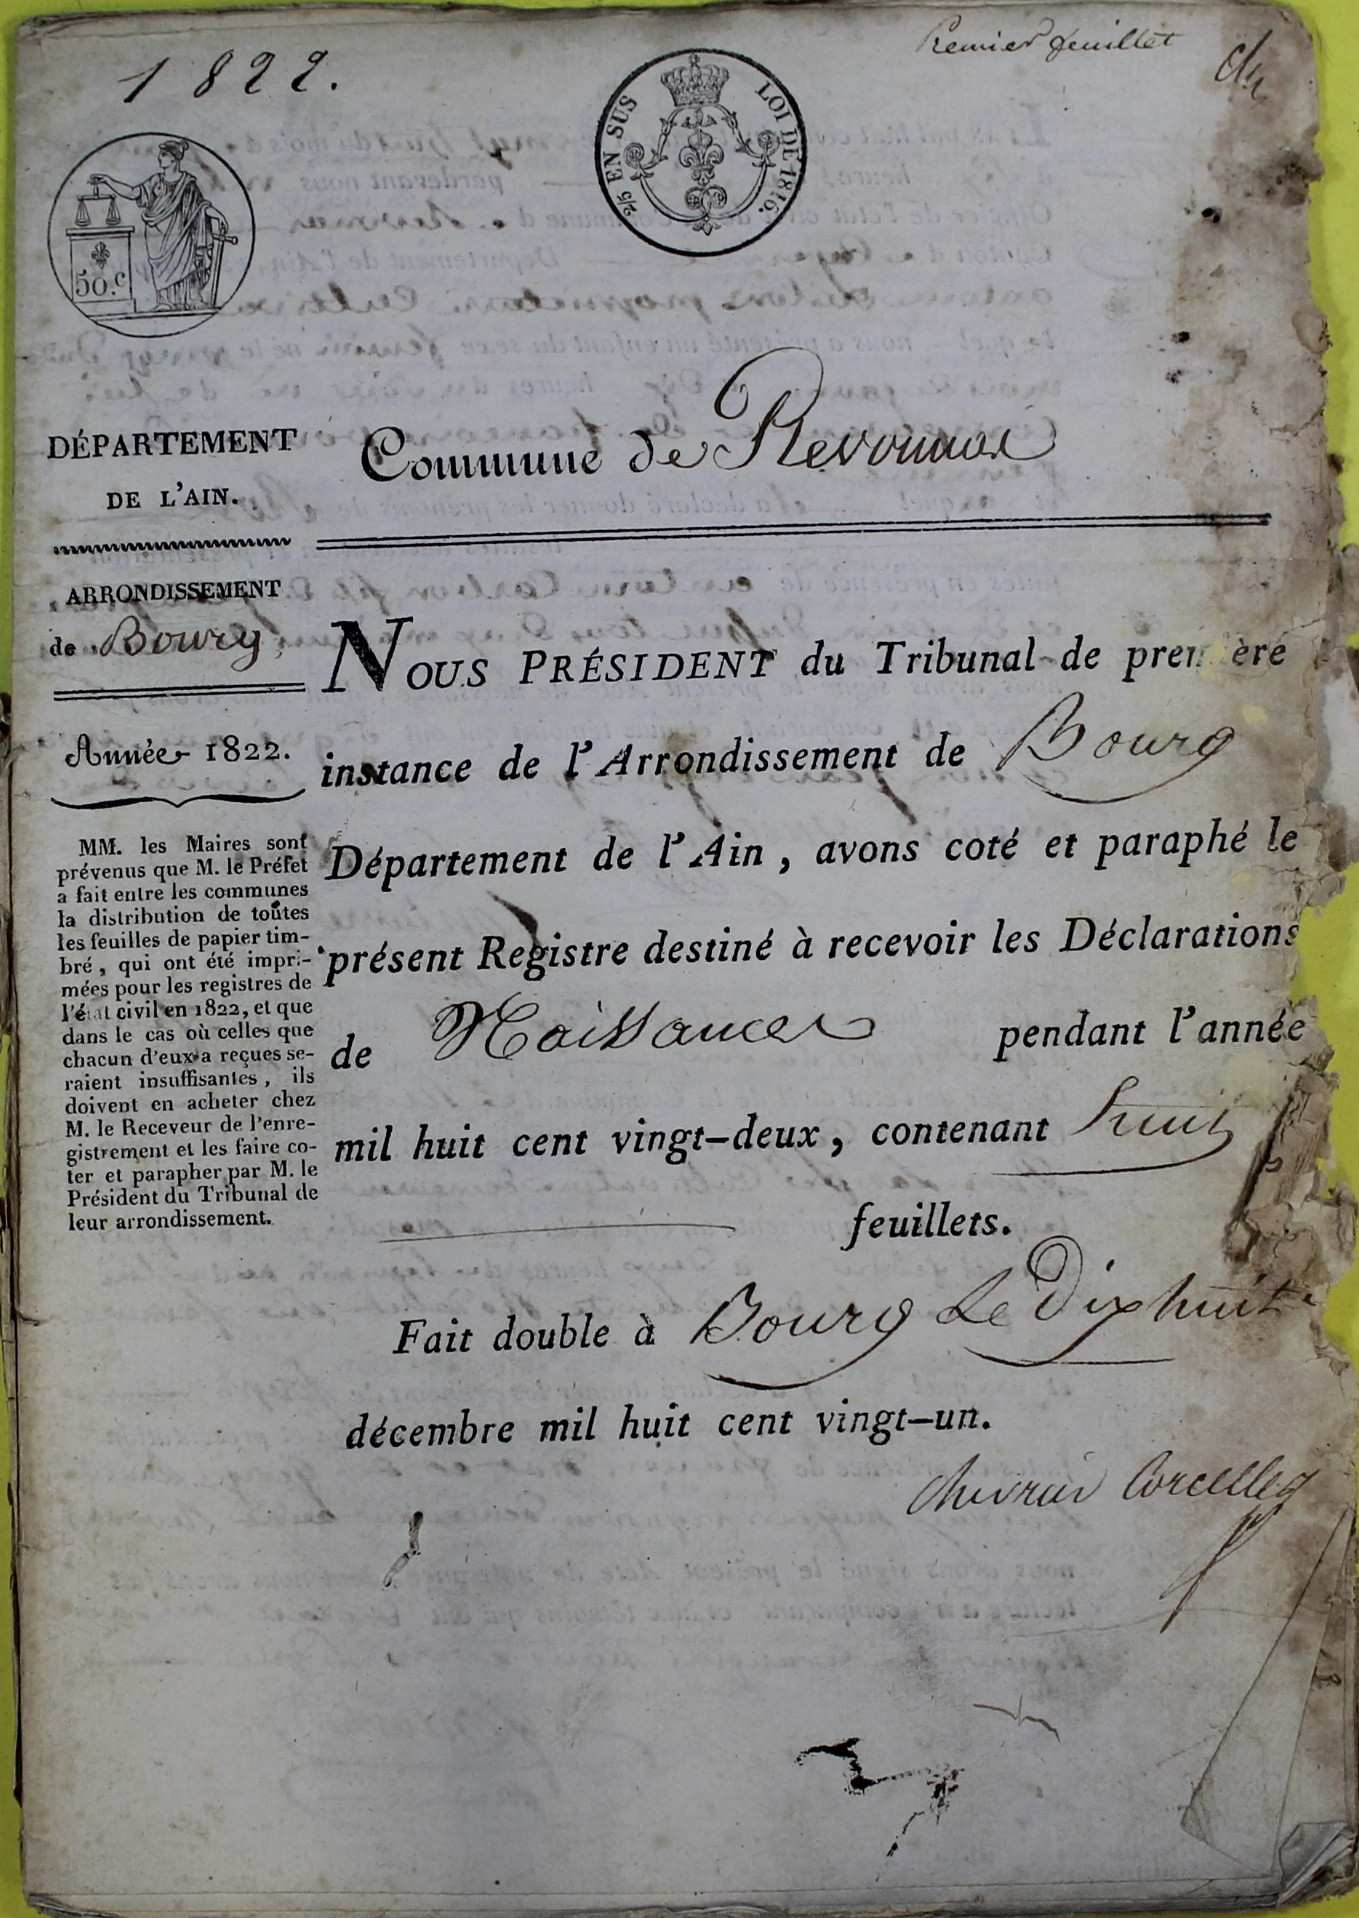 1822.
Premier feuillet
2/5 EN SUS LOI DE 1816.
50.c
DÉPARTEMENT
DE L'AIN.
Commune de Revonnas
ARRONDISSEMENT
de Bourg
Année 1822.
MM. les Maires sont
prévenus que M. le Préfet
a fait entre les communes
la distribution de toutes
les feuilles de papier tim-
bré, qui ont été impri-
mées pour les registres de
l'état civil en 1822, et que
dans le cas où celles que
chacun d'eux a reçues se-
raient insuffisantes, ils
doivent en acheter chez
M. le Receveur de l'enre-
gistrement et les faire co-
ter et parapher par M. le
Président du Tribunal de
leur arrondissement.
NOUS PRÉSIDENT du Tribunal de première
instance de l'Arrondissement de Bourg
Département de l'Ain, avons coté et paraphé le
présent Registre destiné à recevoir les Déclarations
de Naissances pendant l'année
mil huit cent vingt-deux, contenant huit
feuillets.
Fait double à Bourg Le Dix huit
décembre mil huit cent vingt-un.
Chevrier Corcelles